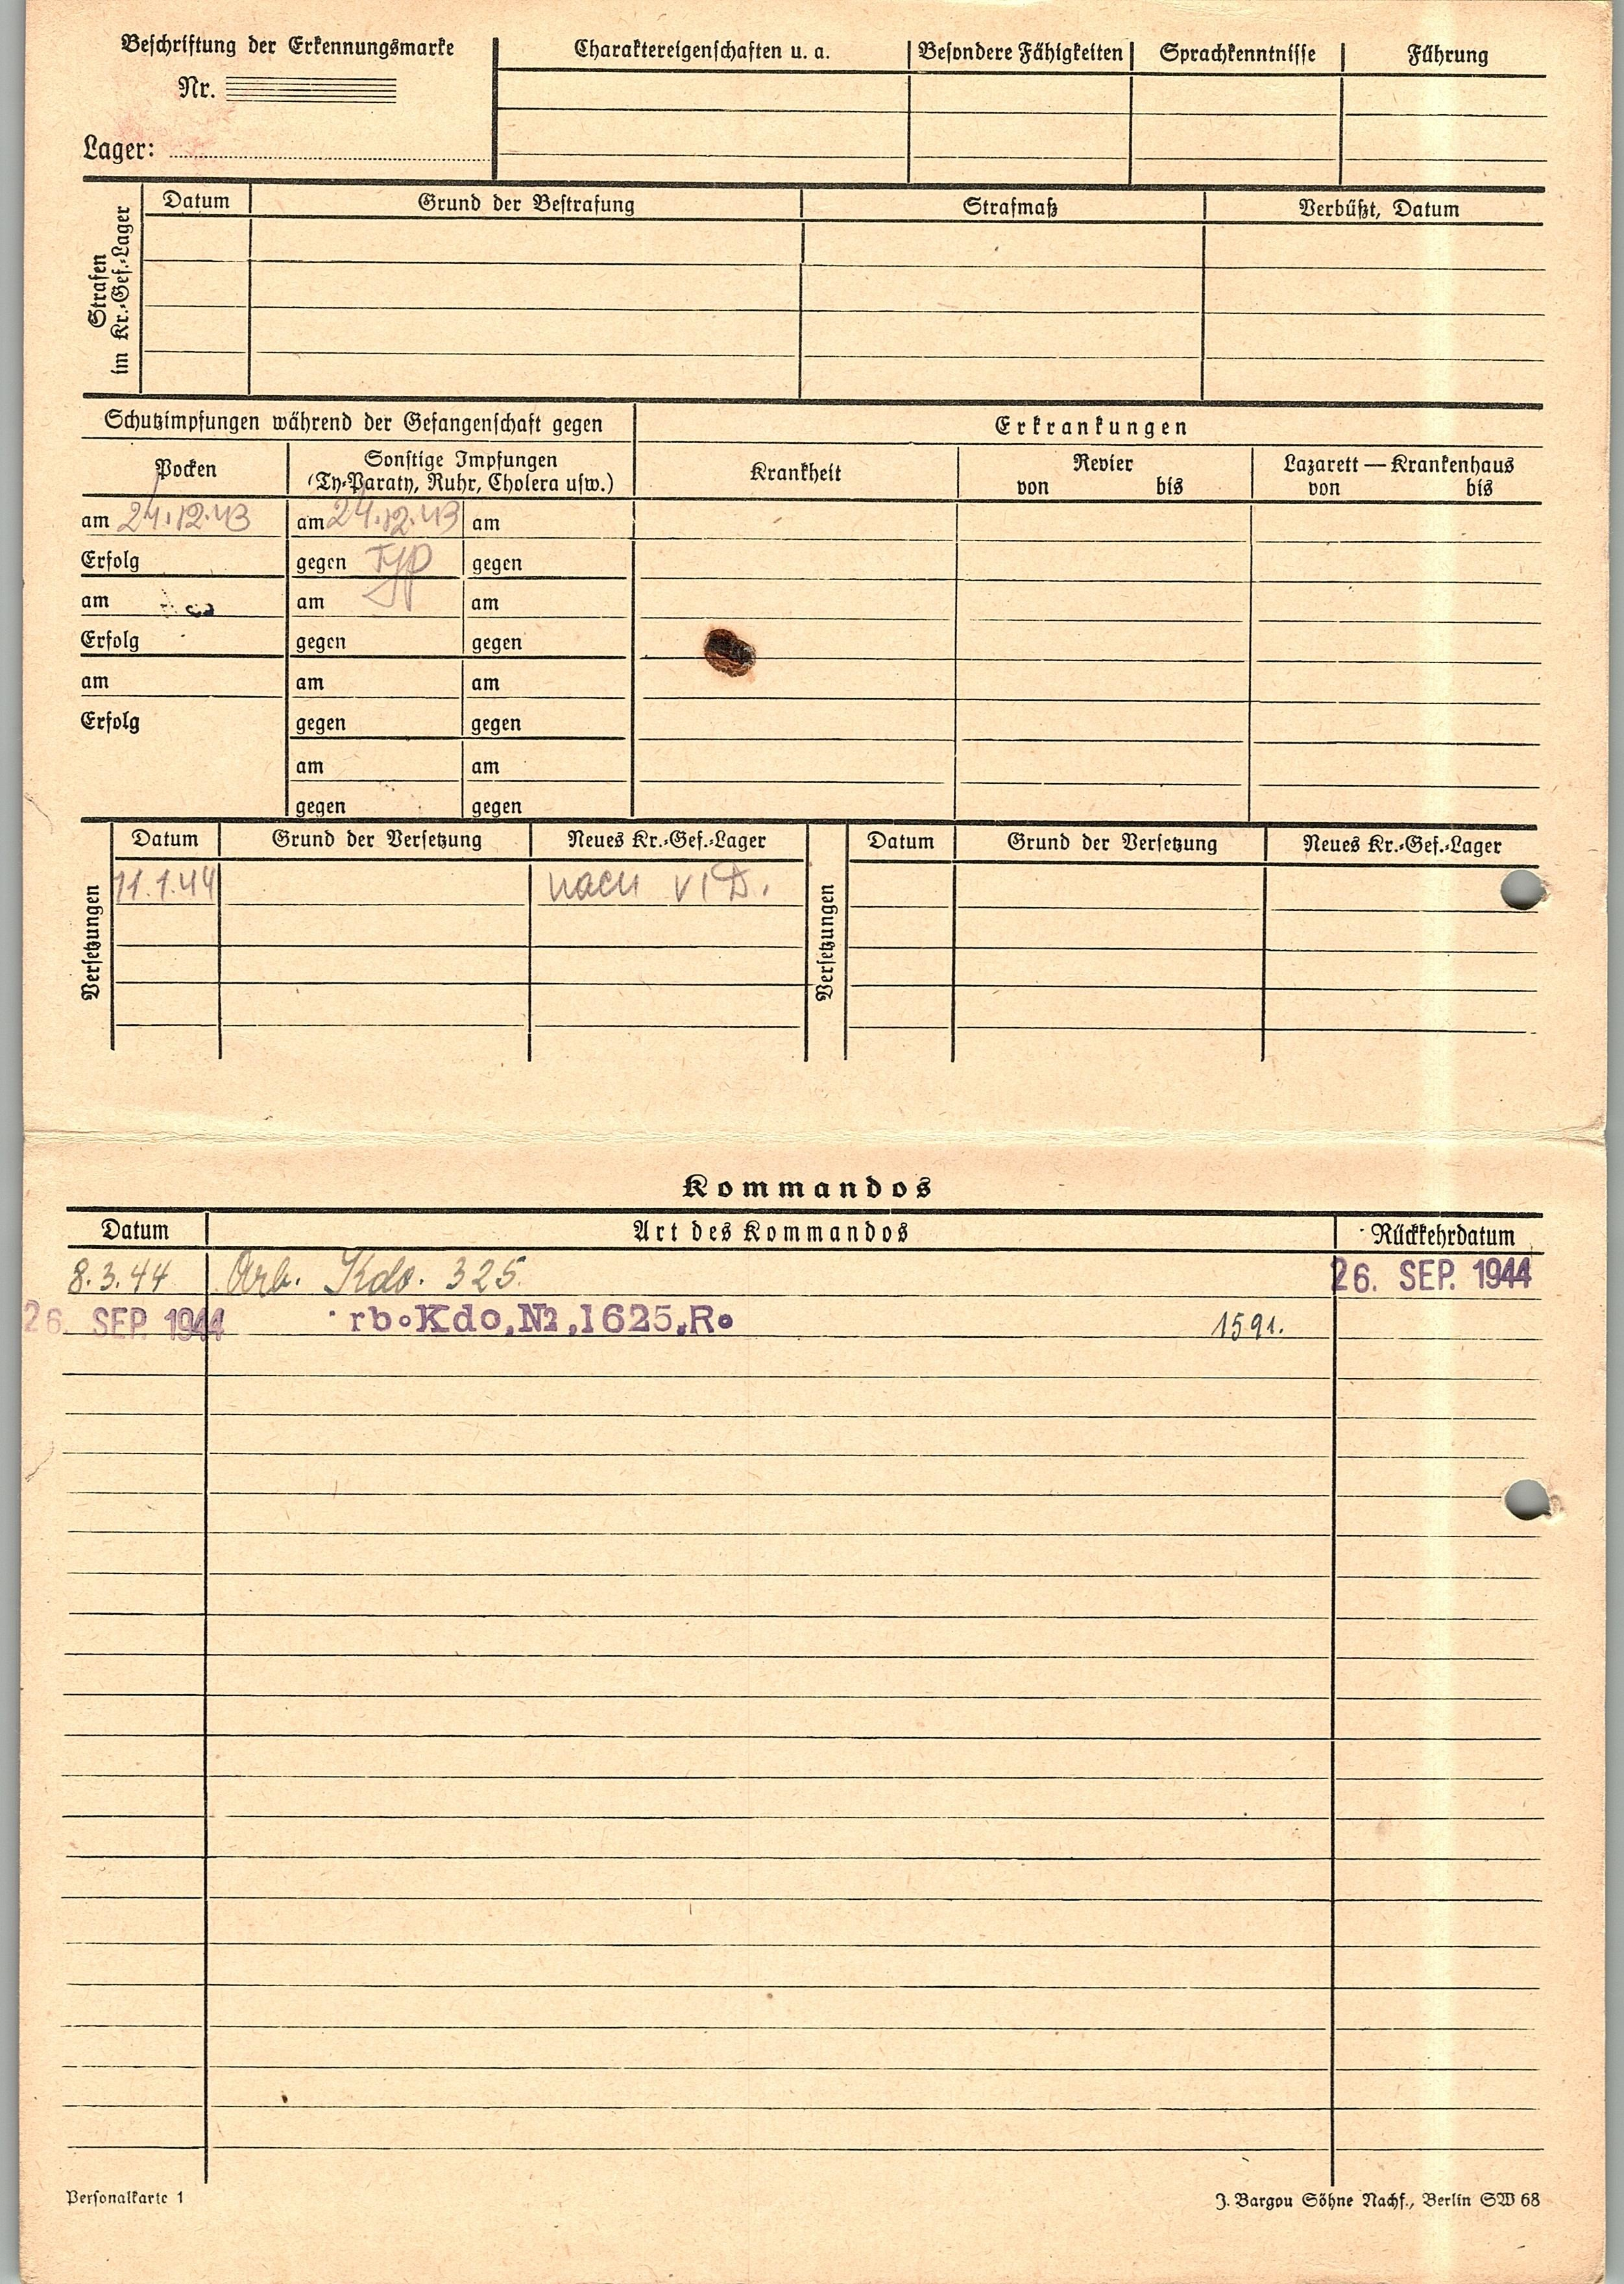 Beschriftung der Erkennungsmarke
Nr.
Lager:
Charaktereigenschaften u. a. Besondere Fähigkeiten Sprachkenntnisse Führung
Strafen
im Kr.-Gef.-Lager
Datum Grund der Bestrafung Strafmaß Verbüßt, Datum
Schutzimpfungen während der Gefangenschaft gegen
Erkrankungen
Pocken
Sonstige Impfungen
(Ty-Paraty, Ruhr, Cholera usw.)
Krankheit
Revier
von bis
Lazarett — Krankenhaus
von bis
am 24.12.43 am 24.12.43 am
Erfolg gegen Typ gegen
am am am
Erfolg gegen gegen
am am am
Erfolg gegen gegen
am am
gegen gegen
Versetzungen
Datum Grund der Versetzung Neues Kr.-Gef.-Lager
11.1.44 nach VI D.
Versetzungen
Datum Grund der Versetzung Neues Kr.-Gef.-Lager
Kommandos
Datum Art des Kommandos Rückkehrdatum
8.3.44 Arb. Kdo. 325. 26. SEP. 1944
26. SEP. 1944 rb.Kdo.No.1625.R. 1591.
Personalkarte 1
J. Bargou Söhne Nachf., Berlin SW 68